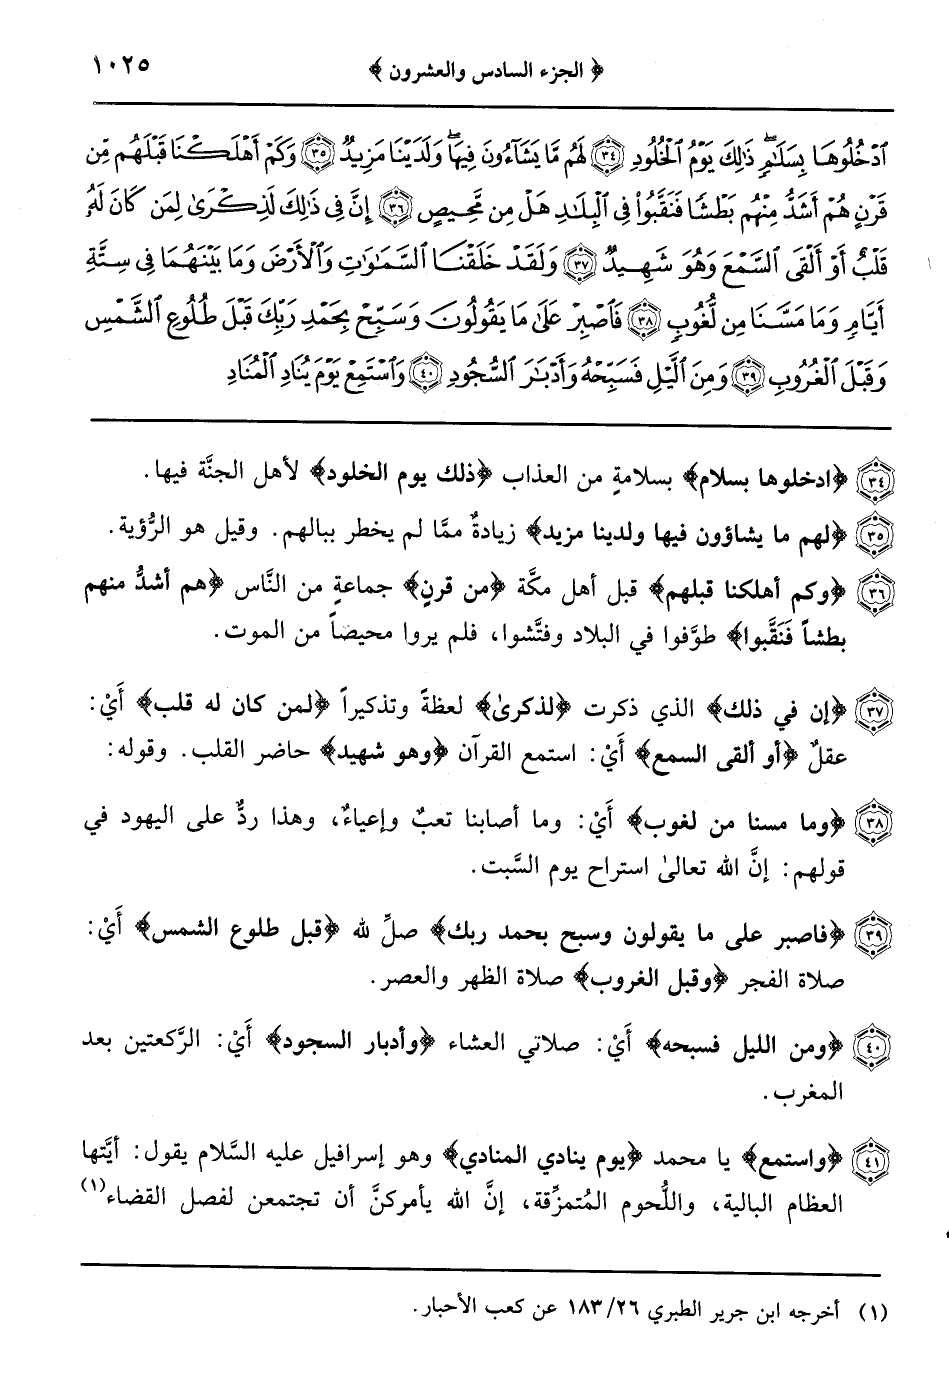 ﴿ الجزء السادس والعشرون ﴾ ١٠٢٥
ٱدْخُلُوهَا بِسَلَٰمٍ ۖ ذَٰلِكَ يَوْمُ ٱلْخُلُودِ ﴿٣٤﴾ لَهُم مَّا يَشَآءُونَ فِيهَا ۖ وَلَدَيْنَا مَزِيدٌ ﴿٣٥﴾ وَكَمْ أَهْلَكْنَا قَبْلَهُم مِّن
قَرْنٍ هُمْ أَشَدُّ مِنْهُم بَطْشًا فَنَقَّبُوا۟ فِى ٱلْبِلَٰدِ هَلْ مِن مَّحِيصٍ ﴿٣٦﴾ إِنَّ فِى ذَٰلِكَ لَذِكْرَىٰ لِمَن كَانَ لَهُۥ
قَلْبٌ أَوْ أَلْقَى ٱلسَّمْعَ وَهُوَ شَهِيدٌ ﴿٣٧﴾ وَلَقَدْ خَلَقْنَا ٱلسَّمَٰوَٰتِ وَٱلْأَرْضَ وَمَا بَيْنَهُمَا فِى سِتَّةِ
أَيَّامٍ وَمَا مَسَّنَا مِن لُّغُوبٍ ﴿٣٨﴾ فَٱصْبِرْ عَلَىٰ مَا يَقُولُونَ وَسَبِّحْ بِحَمْدِ رَبِّكَ قَبْلَ طُلُوعِ ٱلشَّمْسِ
وَقَبْلَ ٱلْغُرُوبِ ﴿٣٩﴾ وَمِنَ ٱلَّيْلِ فَسَبِّحْهُ وَأَدْبَٰرَ ٱلسُّجُودِ ﴿٤٠﴾ وَٱسْتَمِعْ يَوْمَ يُنَادِ ٱلْمُنَادِ
٣٤ ﴿ادخلوها بسلام﴾ بسلامةٍ من العذاب ﴿ذلك يوم الخلود﴾ لأهل الجنَّة فيها.
٣٥ ﴿لهم ما يشاؤون فيها ولدينا مزيد﴾ زيادةٌ ممَّا لم يخطر ببالهم. وقيل هو الرُّؤية.
٣٦ ﴿وكم أهلكنا قبلهم﴾ قبل أهل مكَّة ﴿من قرنٍ﴾ جماعةٍ من النَّاس ﴿هم أشدُّ منهم
بطشاً فَنَقَّبوا﴾ طوَّفوا في البلاد وفتَّشوا، فلم يروا محيصاً من الموت.
٣٧ ﴿إن في ذلك﴾ الذي ذكرت ﴿لذكرىٰ﴾ لعظةً وتذكيراً ﴿لمن كان له قلب﴾ أَيْ:
عقلٌ ﴿أو ألقى السمع﴾ أَيْ: استمع القرآن ﴿وهو شهيد﴾ حاضر القلب. وقوله:
٣٨ ﴿وما مسنا من لغوب﴾ أَيْ: وما أصابنا تعبٌ وإعياءٌ، وهذا ردٌّ على اليهود في
قولهم: إنَّ الله تعالىٰ استراح يوم السَّبت.
٣٩ ﴿فاصبر على ما يقولون وسبح بحمد ربك﴾ صلِّ لله ﴿قبل طلوع الشمس﴾ أَيْ:
صلاة الفجر ﴿وقبل الغروب﴾ صلاة الظهر والعصر.
٤٠ ﴿ومن الليل فسبحه﴾ أَيْ: صلاتي العشاء ﴿وأدبار السجود﴾ أَيْ: الرَّكعتين بعد
المغرب.
٤١ ﴿واستمع﴾ يا محمد ﴿يوم ينادي المنادي﴾ وهو إسرافيل عليه السَّلام يقول: أيَّتها
العظام البالية، واللُّحوم المُتمزِّقة، إنَّ الله يأمركنَّ أن تجتمعن لفصل القضاء(١)
(١) أخرجه ابن جرير الطبري ٢٦/١٨٣ عن كعب الأحبار.